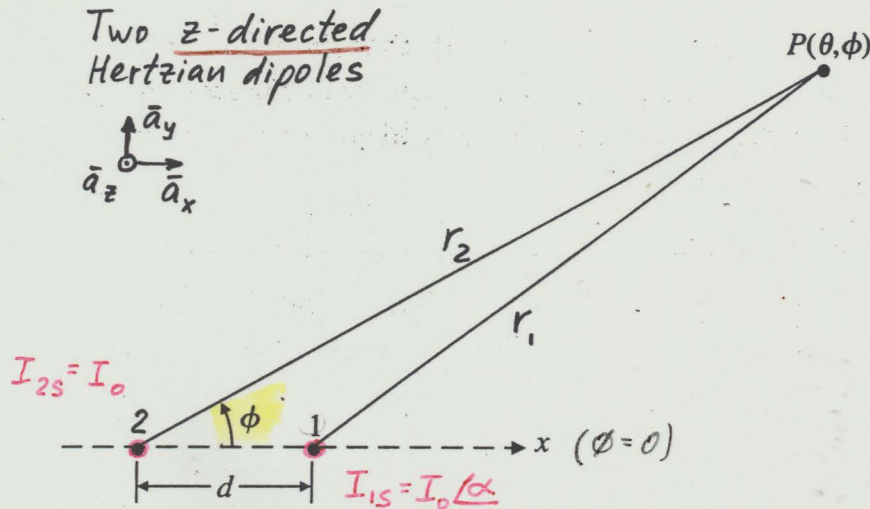 Two z-directed
Hertzian dipoles
P(θ,ϕ)
āy
āz
āx
r2
r1
I2S = I0
ϕ
2
1
x (Ø = 0)
d
I1S = I0∠α